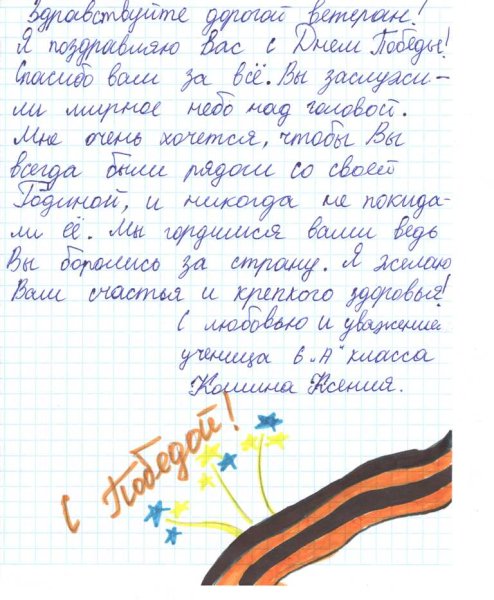 Здравствуйте дорогой ветеран!
Я поздравляю Вас с Днем Победы!
Спасибо вам за всё. Вы заслужи-
ли мирное небо над головой.
Мне очень хочется, чтобы Вы
всегда были рядом со своей
Родиной, и никогда не покида-
ли её. Мы гордимся вами ведь
Вы боролись за страну. Я желаю
Вам счастья и крепкого здоровья!
С любовью и уважением
ученица 6 „А" класса
Кошина Ксения.
С Победой!